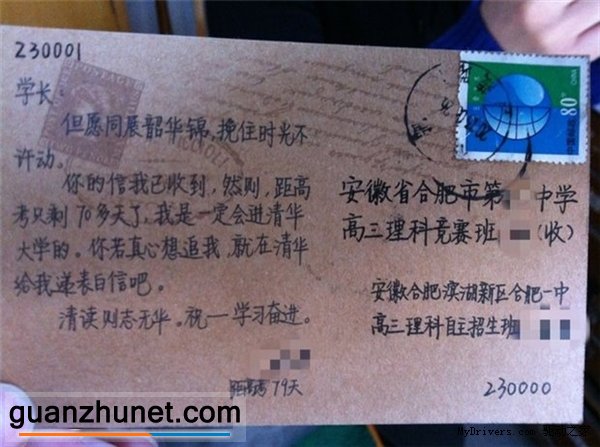 230001
学长:
但愿同展韶华锦,挽住时光不
许动。
你的信我已收到,然则,距高
考只剩70多天了,我是一定会进清华
大学的。你若真心想追我,就在清华
给我递表白信吧。
清读则志无华。祝——学习奋进。
距高考79天
80分
中国邮政
安徽省合肥市第 中学
高三理科竞赛班 (收)
安徽合肥滨湖新区合肥一中
高三理科自主招生班
230000
guanzhunet.com
MyDrivers.com